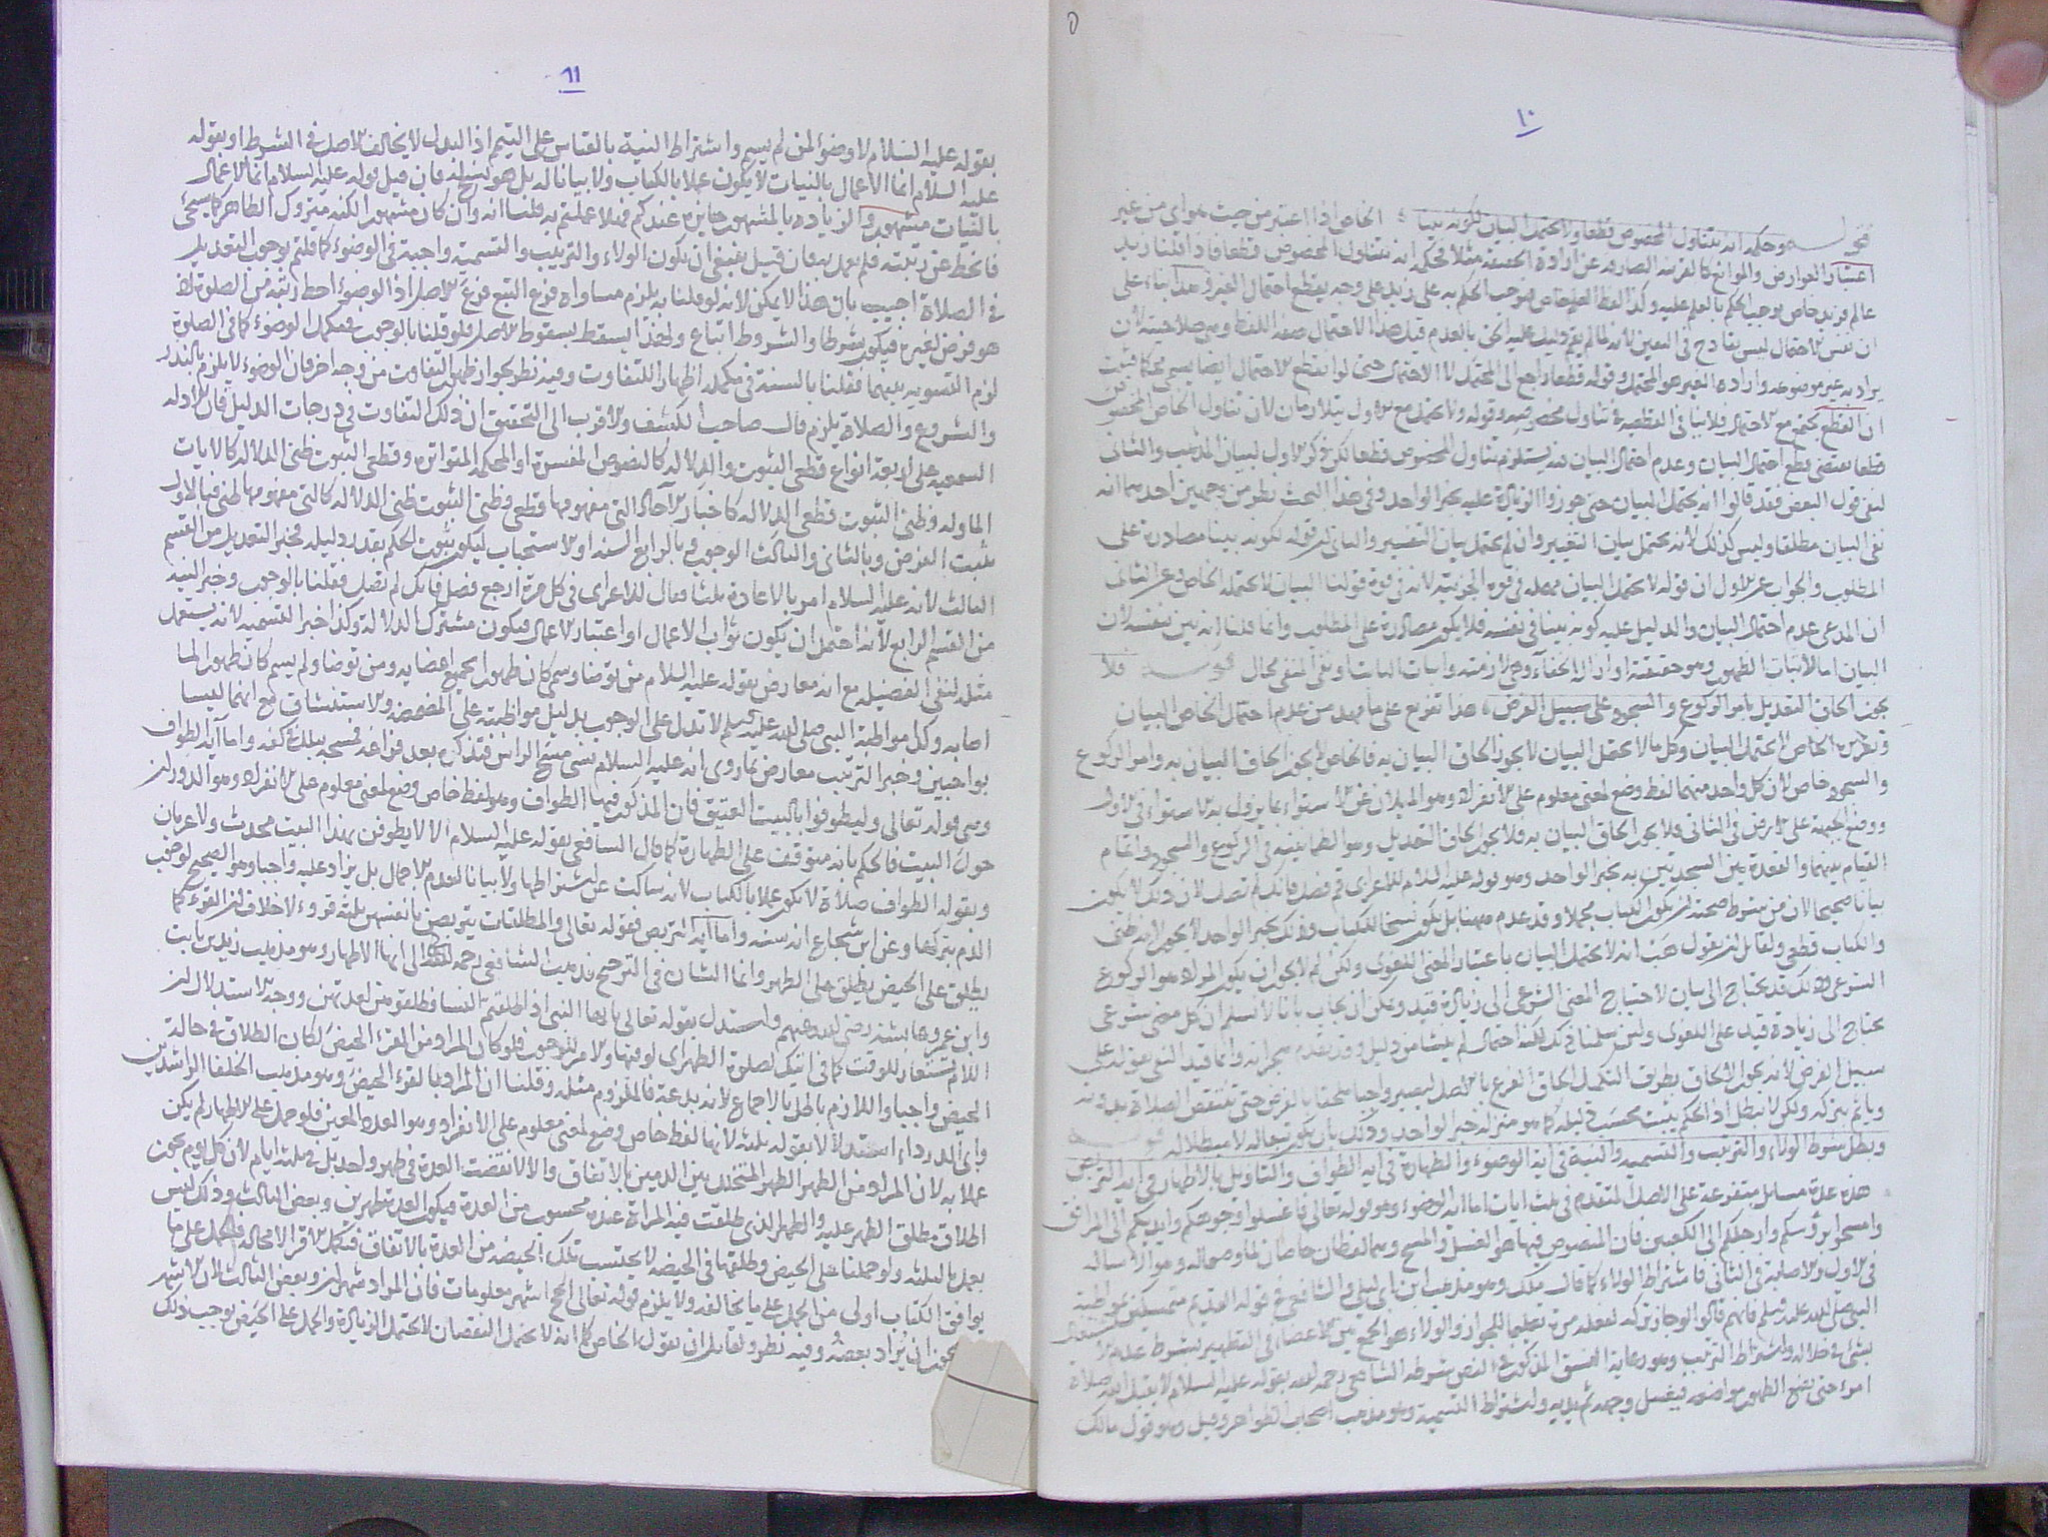 ١٠
قوله وحكمه ان يتناول المخصوص قطعا ولا يحتمل البيان لكونه بينا الخاص اذا اعتبر من حيث هو اي من غير
اعتبار العوارض والموانع كالقرينة الصارفة عن ارادة الحقيقة مثلا فحكمه انه يتناول المخصوص قطعا فاذا قلنا زيد
عالم فزيد خاص يوجب الحكم بالعلم عليه وكذا لفظ العلم خاص يوجب الحكم به على زيد على وجه يقطع احتمال الغير وهذا بناء على
ان نفس الاحتمال ليس بقادح في اليقين لانه لما لم يقم دليل عليه الحق بالعدم قيل هذا الاحتمال صفة اللفظ وهي صلاحيته لان
يراد به غير موضوعه وارادة الغير هو المحتمل وقوله قطعا راجع الى المحتمل لا الاحتمال حتى لو انقطع الاحتمال ايضا يسمى محكما فثبت
ان القطع يجتمع مع الاحتمال فلا ينافي القطعية تناول مخصوصه وقوله ولا يحتمل مع الاول متلازمان لان تناول الخاص المخصوص
قطعا يقتضي قطع احتمال البيان وعدم احتمال البيان يستلزم تناول المخصوص قطعا لكن ذكر الاول لبيان المذهب والثاني
لنفي قول البعض فقد قالوا انه يحتمل البيان حتى جوزوا الزيادة عليه بخبر الواحد وفي هذا البحث نظر من وجهين احدهما انه
نفى البيان مطلقا وليس كذلك لانه يحتمل بيان التغيير وان لم يحتمل بيان التفسير والثاني ان قوله لكونه بينا مصادرة على
المطلوب والجواب عن الاول ان قوله لا يحتمل البيان مهملة في قوة الجزئية لانه في قوة قولنا البيان لا يحتمله الخاص وعن الثاني
ان المدعى عدم احتمال البيان والدليل عليه كونه بينا في نفسه فلا يكون مصادرة على المطلوب وانما قلنا انه بين بنفسه لان
البيان اما لاثبات الظهور وهو حقيقته او ازالة الخفاء وهي لازمته واثبات الثابت او نفي المنفي محال قوله فلا
يجوز الحاق التعديل بامر الركوع والسجود على سبيل الفرض هذا تفريع على ما مهد من عدم احتمال الخاص البيان
وتقريره الخاص لا يحتمل البيان وكل ما لا يحتمل البيان لا يجوز الحاق البيان به فالخاص لا يجوز الحاق البيان به وامر الركوع
والسجود خاص لان كل واحد منهما لفظ وضع لمعنى معلوم على الانفراد وهو الميلان عن الاستواء بما يزول به الاستواء في الاول
ووضع الجبهة على الارض في الثاني فلا يجوز الحاق البيان به فلا يجوز الحاق التعديل وهو الطمانينة في الركوع والسجود واتمام
القيام بينهما والقعدة بين السجدتين به بخبر الواحد وهو قوله عليه السلام للاعرابي قم فصل فانك لم تصل لان ذلك لا يكون
بيانا صحيحا لان من شرط صحته ان يكون الكتاب مجملا وقد عدم ههنا بل يكون نسخا للكتاب وذلك بخبر الواحد لا يجوز لانه ظني
والكتاب قطعي ولقائل ان يقول هب انه لا يحتمل البيان باعتبار المعنى اللغوي ولكن لم لا يجوز ان يكون المراد هو الركوع
الشرعي لانك قد تحتاج الى بيان لاحتياج المعنى الشرعي الى زيادة قيد ويمكن ان يجاب بانا لا نسلم ان كل معنى شرعي
يحتاج الى زيادة قيد على اللغوي ولئن سلمنا ذلك لكنه احتمال لم ينشأ من دليل وقد تقدم وانما قيد النفي بقوله على
سبيل الفرض لانه يجوز الالحاق بطريق التكميل الحاق الفرع بالاصل ليصير واجبا ملحقا بالفرض حتى تنتقص الصلاة بدونه
وياثم بتركه ولكن لا تبطل اذ الحكم يثبت بحسب دليله كما هو منزلة خبر الواحد وذلك بان يكون تبعا له لا مبطلا له قوله
وبطل شرط الولاء والترتيب والتسمية والنية في آية الوضوء والطهارة في آية الطواف والتاويل بالاطهار في آية التربص
هذه عدة مسائل متفرعة على الاصل المتقدم في ثلث ايات اما آية الوضوء وهو قوله تعالى فاغسلوا وجوهكم وايديكم الى المرافق
وامسحوا برؤسكم وارجلكم الى الكعبين فان المنصوص فيها هو الغسل والمسح وهما لفظان خاصان لمعنى معلوم وهو الاسالة
في الاول والاصابة في الثاني فاشتراط الولاء كما قال مالك وهو مذهب ابن ابي ليلى والشافعي في قوله القديم متمسكين بمواظبة
النبي صلى الله عليه وسلم فانهم قالوا لو جاز تركه لفعله مرة تعليما للجواز والولاء هو الجمع بين الاعضاء في التطهير بشرط عدم الاشتغال
بشئ في خلاله واشتراط الترتيب وهو رعاية النسق المذكور في النص بشرطه الشافعي رحمه الله بقوله عليه السلام لا يقبل الله صلاة
امرء حتى يضع الطهور مواضعه فيغسل وجهه ثم يديه واشتراط التسمية وهو مذهب اصحاب الظواهر وقيل وهو قول مالك
١١
بقوله عليه السلام لا وضوء لمن لم يسم واشتراط النية بالقياس على التيمم اذ البدل لا يخالف الاصل في الشرط او بقوله
عليه السلام انما الاعمال بالنيات لا يكون عملا بالكتاب ولا بيانا له بل هو نسخ له فان قيل قوله عليه السلام انما الاعمال
بالنيات مشهور والزيادة بالمشهور جائزة عندكم فهلا عملتم به قلنا انه وان كان مشهورا لكنه متروك الظاهر كما سيجئ
فانحط عن رتبته فلم يعمل به فان قيل فينبغي ان يكون الولاء والترتيب والتسمية واجبة في الوضوء كما قلتم بوجوب التعديل
في الصلاة اجيب بان هذا لا يمكن لانه لو قلنا به يلزم مساواة فرع التبع فرع الاصل اذ الوضوء احط رتبة من الصلوة لانه
هو فرض لغيره فيكون شرطا والشروط اتباع ولهذا يسقط بسقوط الاصل فلو قلنا بالوجوب في مكمل الوضوء كما في الصلوة
لزم التسوية بينهما فقلنا بالسنة في مكمله اظهارا للتفاوت وفيه نظر لجواز ظهور التفاوت من وجه اخر فان الوضوء لا يلزم بالنذر
والشروع والصلاة يلزم قال صاحب الكشف والاقرب الى التحقيق ان ذلك التفاوت في درجات الدليل فان الادلة
السمعية على اربعة انواع قطعي الثبوت والدلالة كالنصوص المفسرة او المحكمة المتواترة وقطعي الثبوت ظني الدلالة كالايات
الماولة وظني الثبوت قطعي الدلالة كاخبار الآحاد التي مفهومها قطعي وظني الثبوت ظني الدلالة كالتي مفهومها ظني فبالاول
يثبت الفرض وبالثاني والثالث الوجوب وبالرابع السنة او الاستحباب ليكون ثبوت الحكم بقدر دليله فخبر التعديل من القسم
الثالث لانه عليه السلام امر بالاعادة ثلثا فقال للاعرابي في كل مرة ارجع فصل فانك لم تصل فقلنا بالوجوب وخبر النية
من القسم الرابع لانه احتمل ان يكون ثواب الاعمال او اعتبار الاعمال فيكون مشترك الدلالة وكذا خبر التسمية لانه يستعمل
مثله لنفي الفضيلة مع انه معارض بقوله عليه السلام من توضا وسمى كان طهورا لجميع اعضايه ومن توضا ولم يسم كان طهورا لما
اصابه وكذا مواظبة النبي صلى الله عليه وسلم لا تدل على الوجوب بدليل مواظبته على المضمضة والاستنشاق مع انهما ليسا
بواجبين وخبر الترتيب معارض بما روى انه عليه السلام نسي مسح الراس فتذكره بعد فراغه فمسحه ببلل في كفه واما آية الطواف
وهي قوله تعالى وليطوفوا بالبيت العتيق فان المذكور فيها الطواف وهو لفظ خاص وضع لمعنى معلوم على الانفراد وهو الدوران
حول البيت فالحكم بانه متوقف على الطهارة كما قال الشافعي بقوله عليه السلام الا لا يطوفن بهذا البيت محدث ولا عريان
وبقوله الطواف صلاة لا يكون عملا بالكتاب لانه ساكت عن اشتراطها ولا بيانا لعدم الاجمال بل يزاد عليه واجبا وهو الصحيح لوجوب
الدم بتركها وعن ابن شجاع انه سنة واما آية التربص فقوله تعالى والمطلقات يتربصن بانفسهن ثلثة قروء لا خلاف ان القرء كما
يطلق على الحيض يطلق على الطهر وانما الشان في الترجيح فذهب الشافعي رحمه الله الى انها الاطهار وهو مذهب زيد بن ثابت
وابن عمر وعائشة رضي الله عنهم واستدل بقوله تعالى يا ايها النبي اذا طلقتم النسا فطلقوهن لعدتهن ووجه الاستدلال ان
اللام تستعار للوقت كما في اتيتك لصلوة الظهر اي لوقتها والامر للوجوب فلو كان المراد من القرء الحيض لكان الطلاق في حالة
الحيض واجبا واللازم باطل بالاجماع لانه بدعة فالملزوم مثله وقلنا ان المراد بالقرء الحيض وهو مذهب الخلفا الراشدين
وابي الدرداء استدلالا بقوله ثلثة لانها لفظ خاص وضع لمعنى معلوم على الانفراد وهو العدد المعين فلو حمل على الاطهار لم يكن
عملا به لان المراد من الطهر الطهر المتخلل بين الدمين بالاتفاق والا لانقضت العدة في طهر واحد بل في ثلثة ايام لان كل يوم يجوز
اطلاق مطلق الطهر عليه والطهر الذي طلقت فيه المراة عنده محسوب من العدة فيكون العدة طهرين وبعض الثالث وذلك ليس
بعمل بالثلثة ولو حملنا على الحيض وطلقها في الحيضة لا يحتسب تلك الحيضة من العدة بالاتفاق فتكمل الاقراء لا محالة والحمل على ما
يوافق الكتاب اولى من الحمل على ما يخالفه ولا يلزم قوله تعالى الحج اشهر معلومات فان المراد شهران وبعض الثالث لان الاشهر
يجوز ان يراد بعضه وفيه نظر ولقائل ان يقول الخاص كما انه لا يحتمل النقصان لا يحتمل الزيادة والحمل على الحيض يوجب ذلك